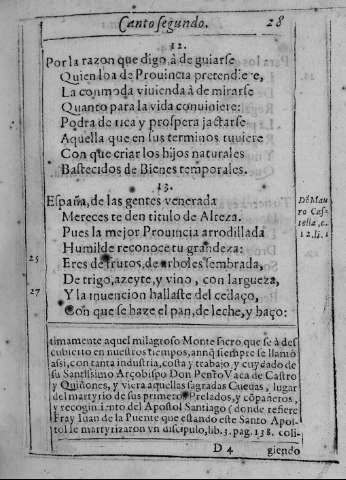 Canto segundo. 28
12.
Por la razon que digo, à de guiarse
Quien loa de Prouincia pretendiere,
La comoda viuienda à de mirarse
Quanto para la vida conuiniere:
Podra de rica y prospera jactarse
Aquella que en sus terminos tuuiere
Con que criar los hijos naturales
Bastecidos de Bienes temporales.
13.
España, de las gentes venerada
Mereces te den titulo de Alteza.
Pues la mejor Prouincia arrodillada
Humilde reconoce tu grandeza:
25 Eres de frutos, de arboles sembrada,
De trigo, azeyte, y vino, con largueza,
27 Y la inuencion hallaste del cedaço,
Con que se haze el pan, de leche, y baço:
De Mau
ro Cas
tella, c.
12. li. 1
timamente aquel milagroso Monte sacro que se à des
cubierto en nuestros tiempos, annq̃ siempre se llamó
assi, con tanta industria, costa y trabajo, y cuydado de
su Santissimo Arçobispo Don Pedro Vaca de Castro
y Quiñones, y viera aquellas sagradas Cueuas, lugar
del martyrio de sus primeros Prelados, y cõpañeros, y
y recogimiento del Apostol Santiago (donde refiere
Fray Iuan de la Puente que estando este Santo Apos-
tol le martyrizaron vn discipulo, lib. 3. pag. 138. coli-
D 4 giendo